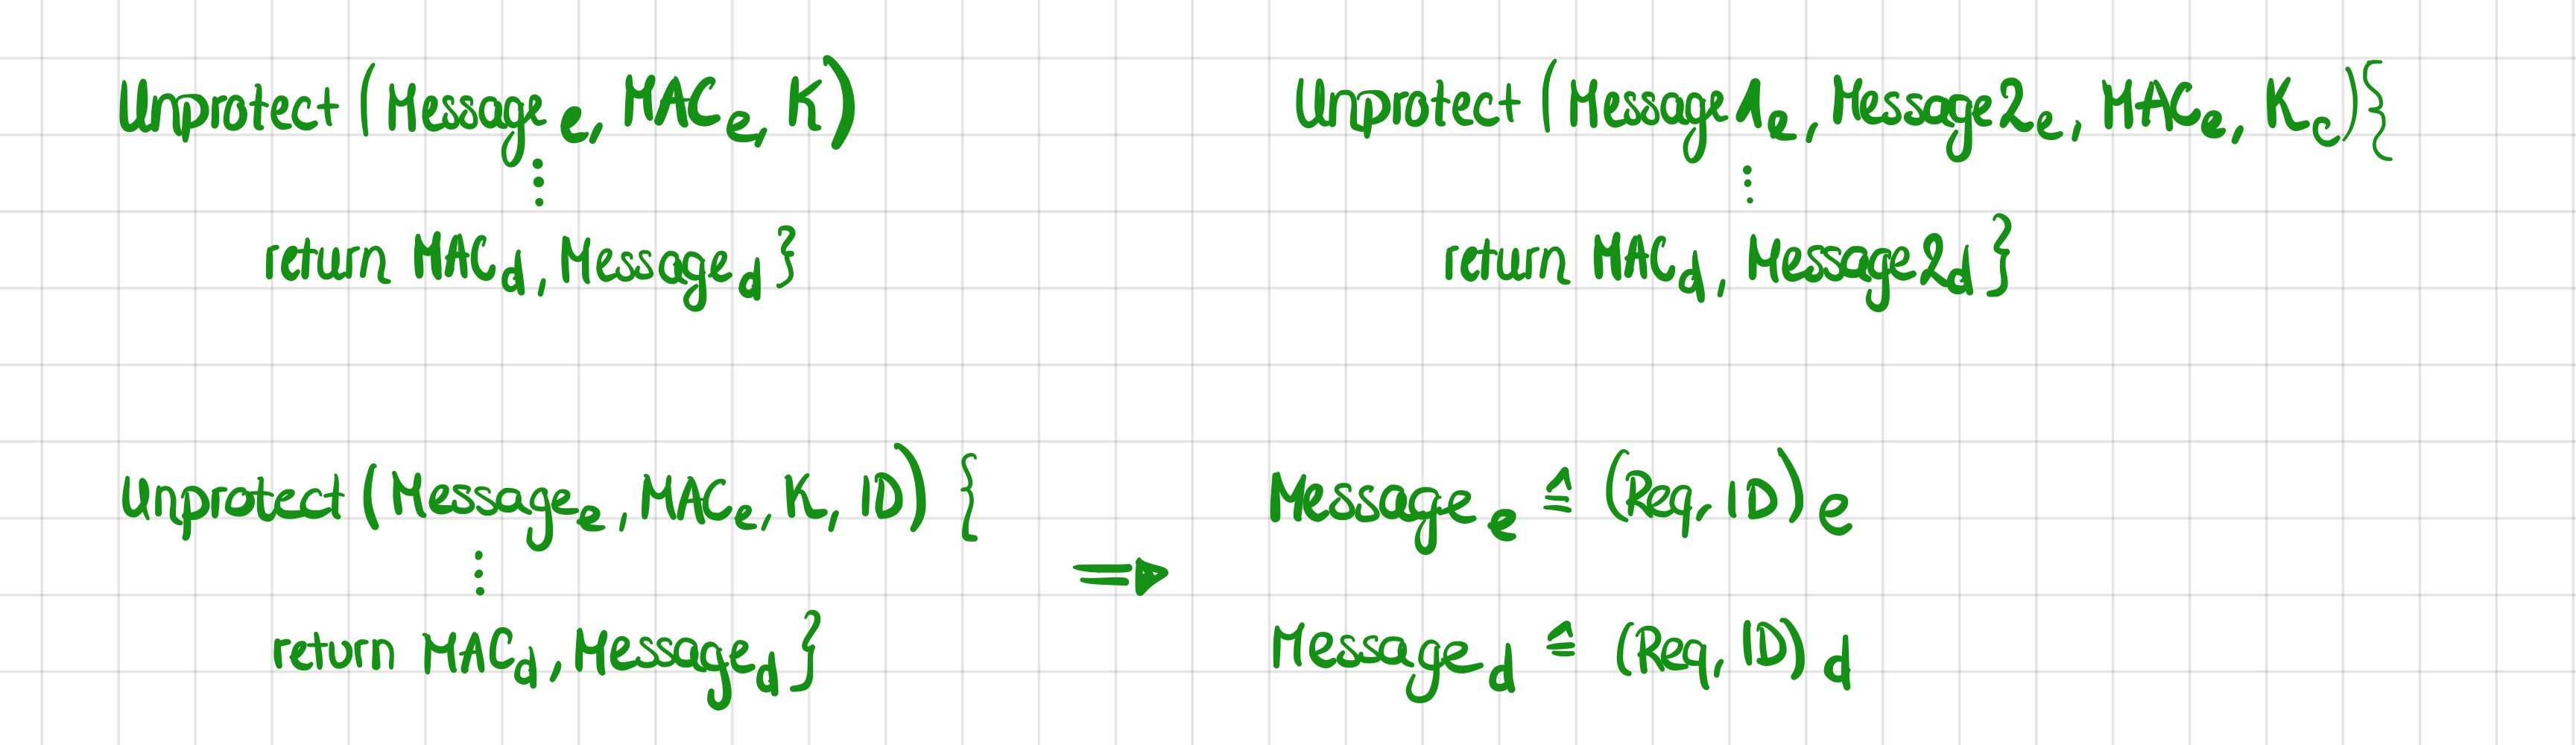 Unprotect (Message e, MAC e, K)
⋮
return MAC d, Message d }
Unprotect (Message1e, Message2e, MACe, Kc){
⋮
return MAC d, Message2d }
Unprotect (Messagee, MACe, K, ID) {
⋮
return MACd, Messaged }
⇒
Message e ≙ (Req, ID) e
Message d ≙ (Req, ID) d